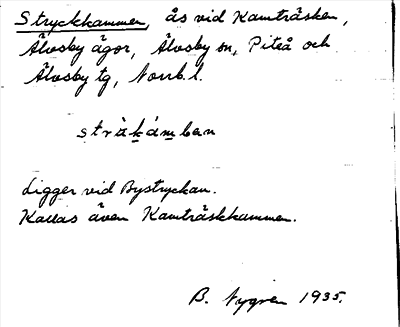 Stryckkammen, ås vid Kamträsken,
Älvsby ägor, Älvsby sn, Piteå och
Älvsby tg, Norrb. l.
stràkámban
Ligger vid Bystryckan.
Kallas även Kamträskkammen.
B. Nygren 1935.